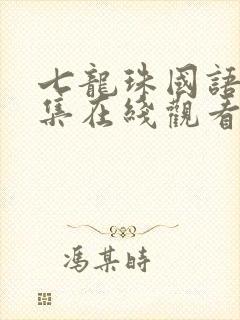 七龍珠國語
集在綫觀看
馮某時